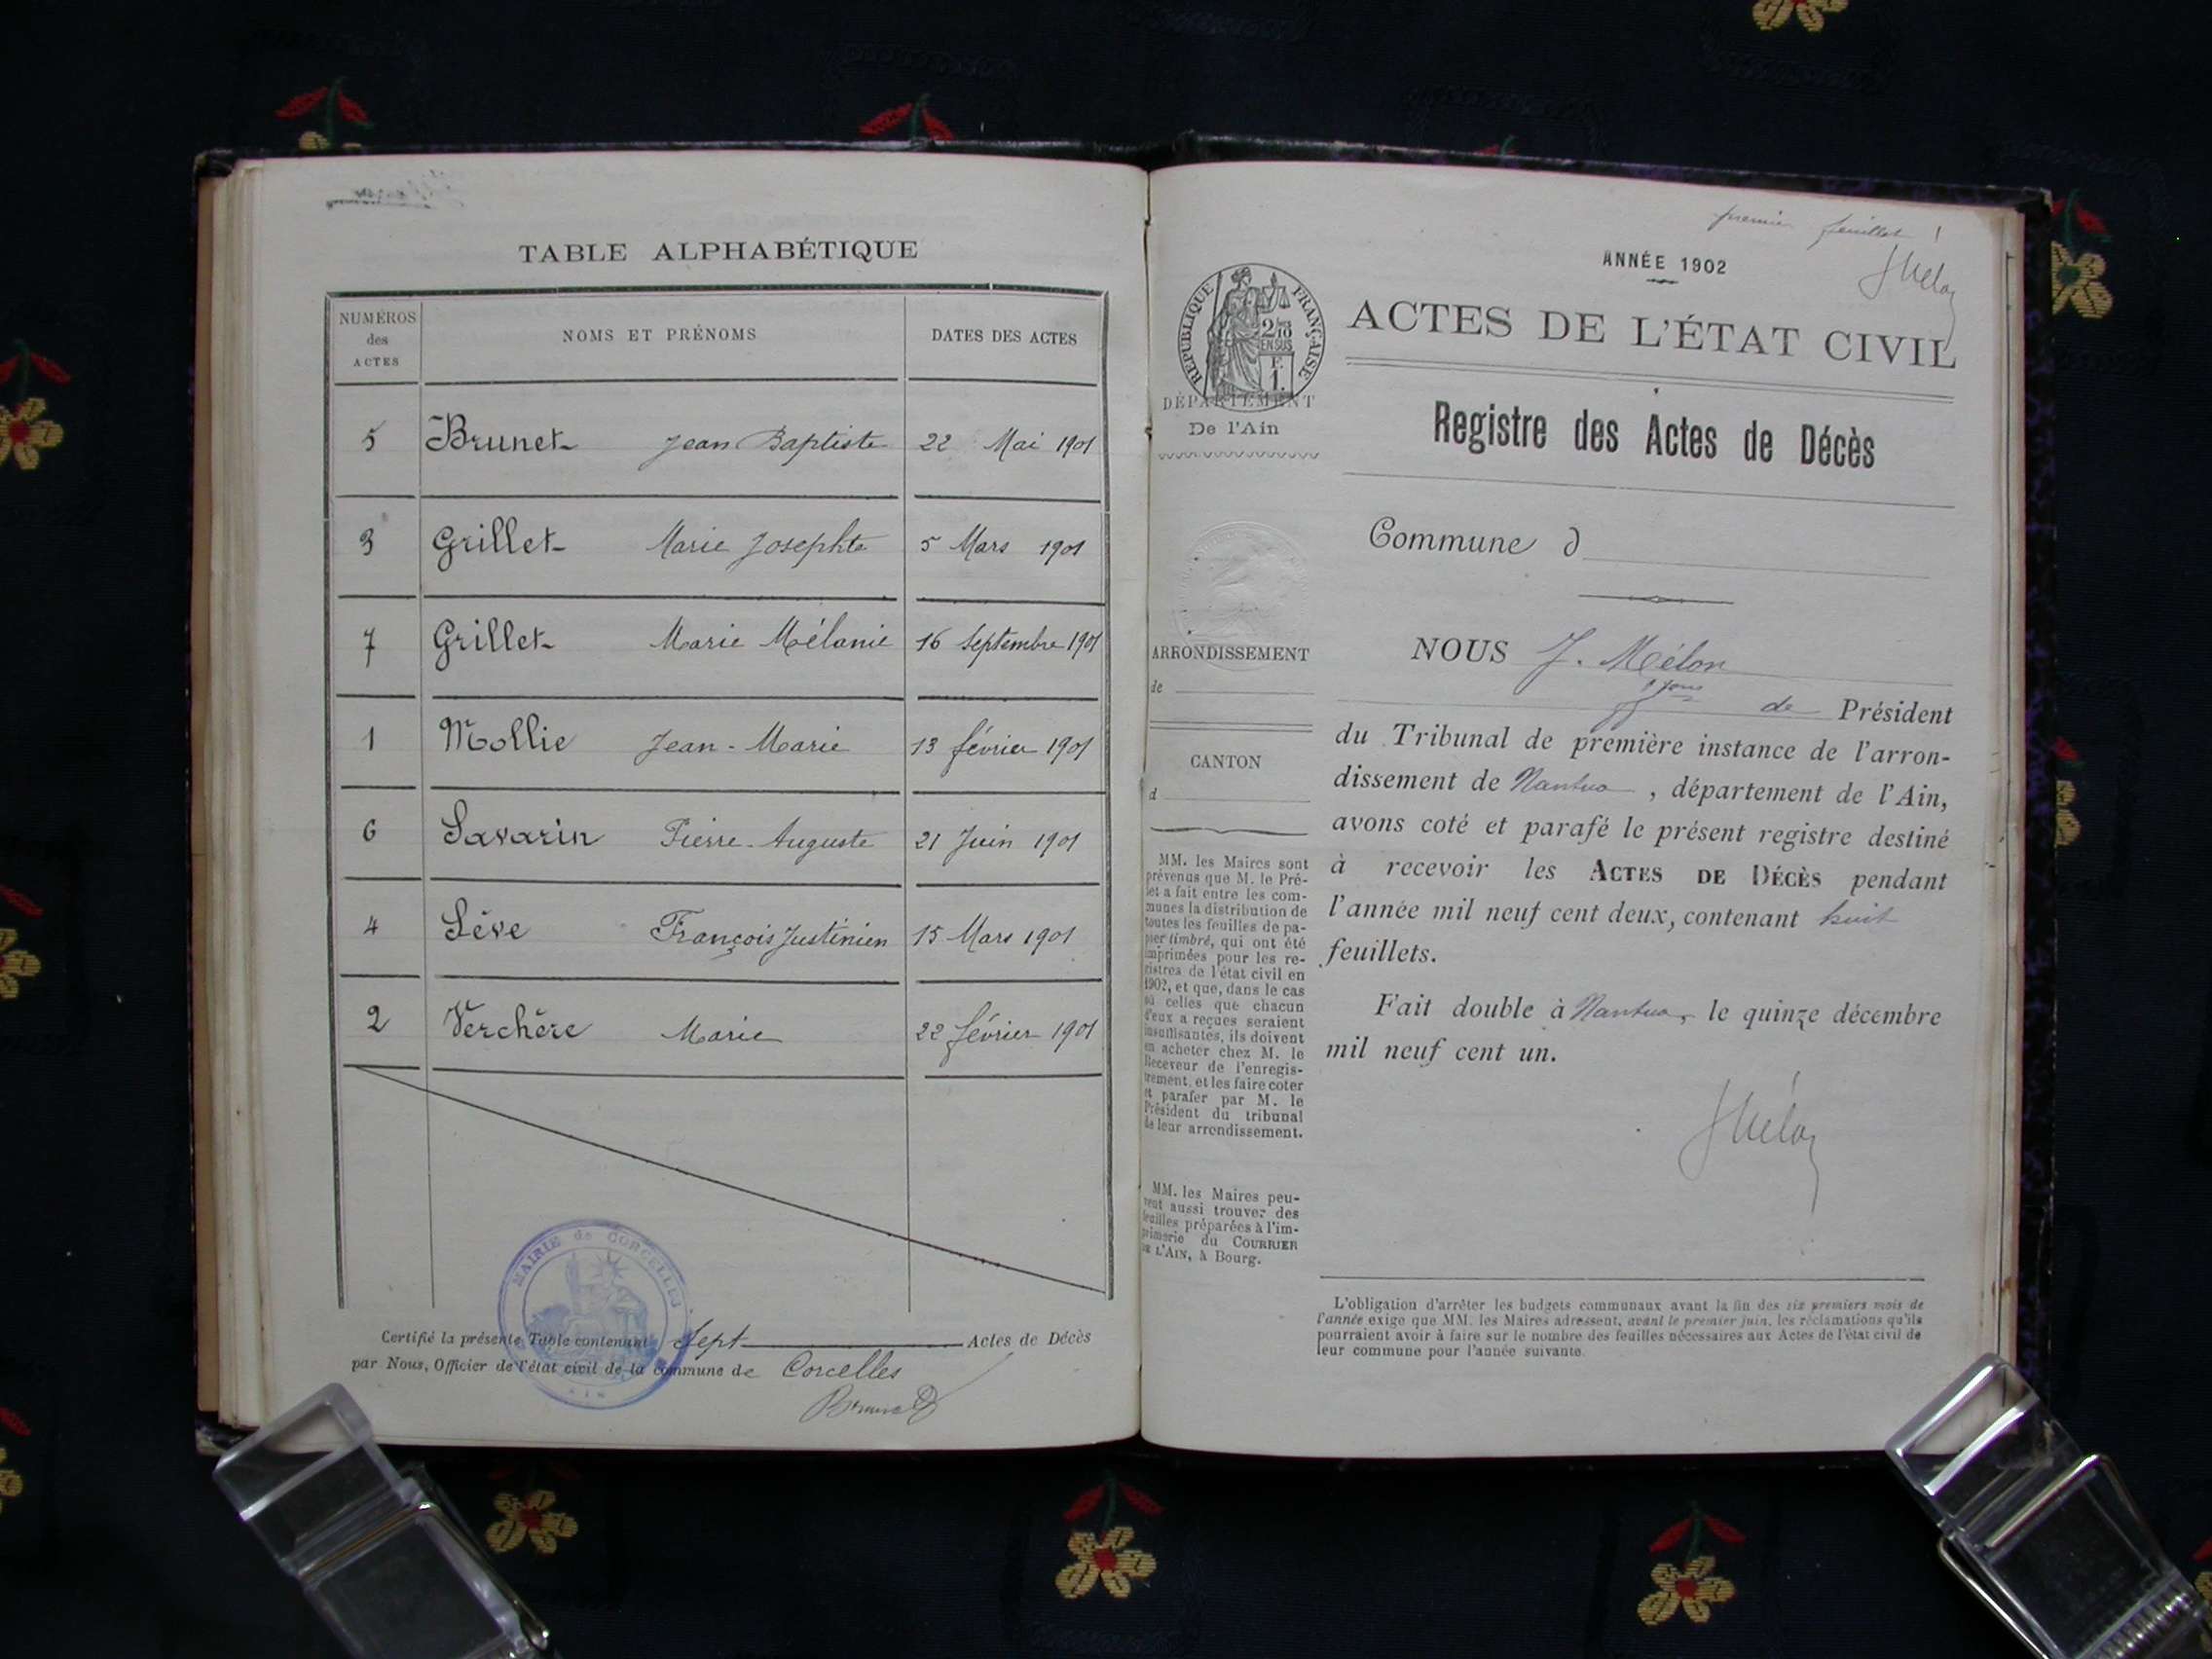 TABLE ALPHABÉTIQUE
NUMÉROS
des
ACTES
NOMS ET PRÉNOMS
DATES DES ACTES
5 Brunet Jean Baptiste 22 Mai 1901
3 Grillet Marie Josephte 5 Mars 1901
7 Grillet Marie Mélanie 16 Septembre 1901
1 Mollie Jean-Marie 13 février 1901
6 Savarin Pierre-Auguste 21 Juin 1901
4 Sève François Justinien 15 Mars 1901
2 Verchère Marie 22 février 1901
MAIRIE de CORCELLES
AIN
Certifié la présente Table contenant Sept Actes de Décès
par Nous, Officier de l'état civil de la commune de Corcelles
Brunet
premier feuillet
ANNÉE 1902
REPUBLIQUE FRANÇAISE
2/10
EN SUS
F.
1.
DÉPARTEMENT
De l'Ain
ARRONDISSEMENT
de
CANTON
d
MM. les Maires sont
prévenus que M. le Pré-
fet a fait entre les com-
munes la distribution de
toutes les feuilles de pa-
pier timbré, qui ont été
imprimées pour les re-
gistres de l'état civil en
1902, et que, dans le cas
où celles que chacun
d'eux a reçues seraient
insuffisantes, ils doivent
en acheter chez M. le
Receveur de l'enregis-
trement, et les faire coter
et parafer par M. le
Président du tribunal
de leur arrondissement.
MM. les Maires peu-
vent aussi trouver des
feuilles préparées à l'im-
primerie du COURRIER
DE L'AIN, à Bourg.
ACTES DE L'ÉTAT CIVIL
Registre des Actes de Décès
Commune d
NOUS J. Mélon
de Président
du Tribunal de première instance de l'arron-
dissement de Nantua, département de l'Ain,
avons coté et parafé le présent registre destiné
à recevoir les ACTES DE DÉCÈS pendant
l'année mil neuf cent deux, contenant huit
feuillets.
Fait double à Nantua, le quinze décembre
mil neuf cent un.
JMélon
L'obligation d'arrêter les budgets communaux avant la fin des six premiers mois de
l'année exige que MM. les Maires adressent, avant le premier juin, les réclamations qu'ils
pourraient avoir à faire sur le nombre des feuilles nécessaires aux Actes de l'état civil de
leur commune pour l'année suivante.